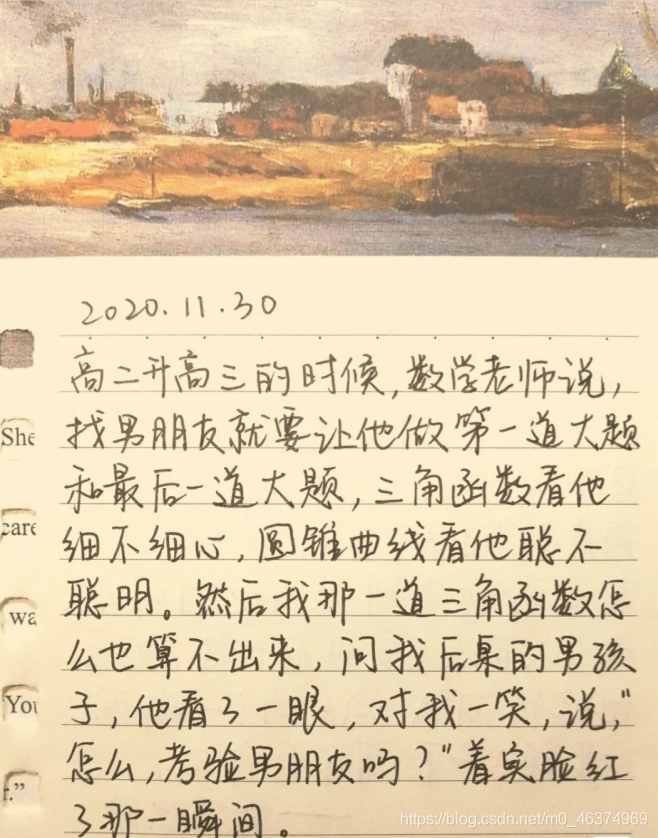 2020.11.30
高二升高三的时候,数学老师说,
找男朋友就要让他做第一道大题
和最后一道大题,三角函数看他
细不细心,圆锥曲线看他聪不
聪明。然后我那一道三角函数怎
么也算不出来,问我后桌的男孩
子,他看了一眼,对我一笑,说,"
怎么,考验男朋友吗?"着实脸红
了那一瞬间。
She
care
wa
You
r."
https://blog.csdn.net/m0_46374969